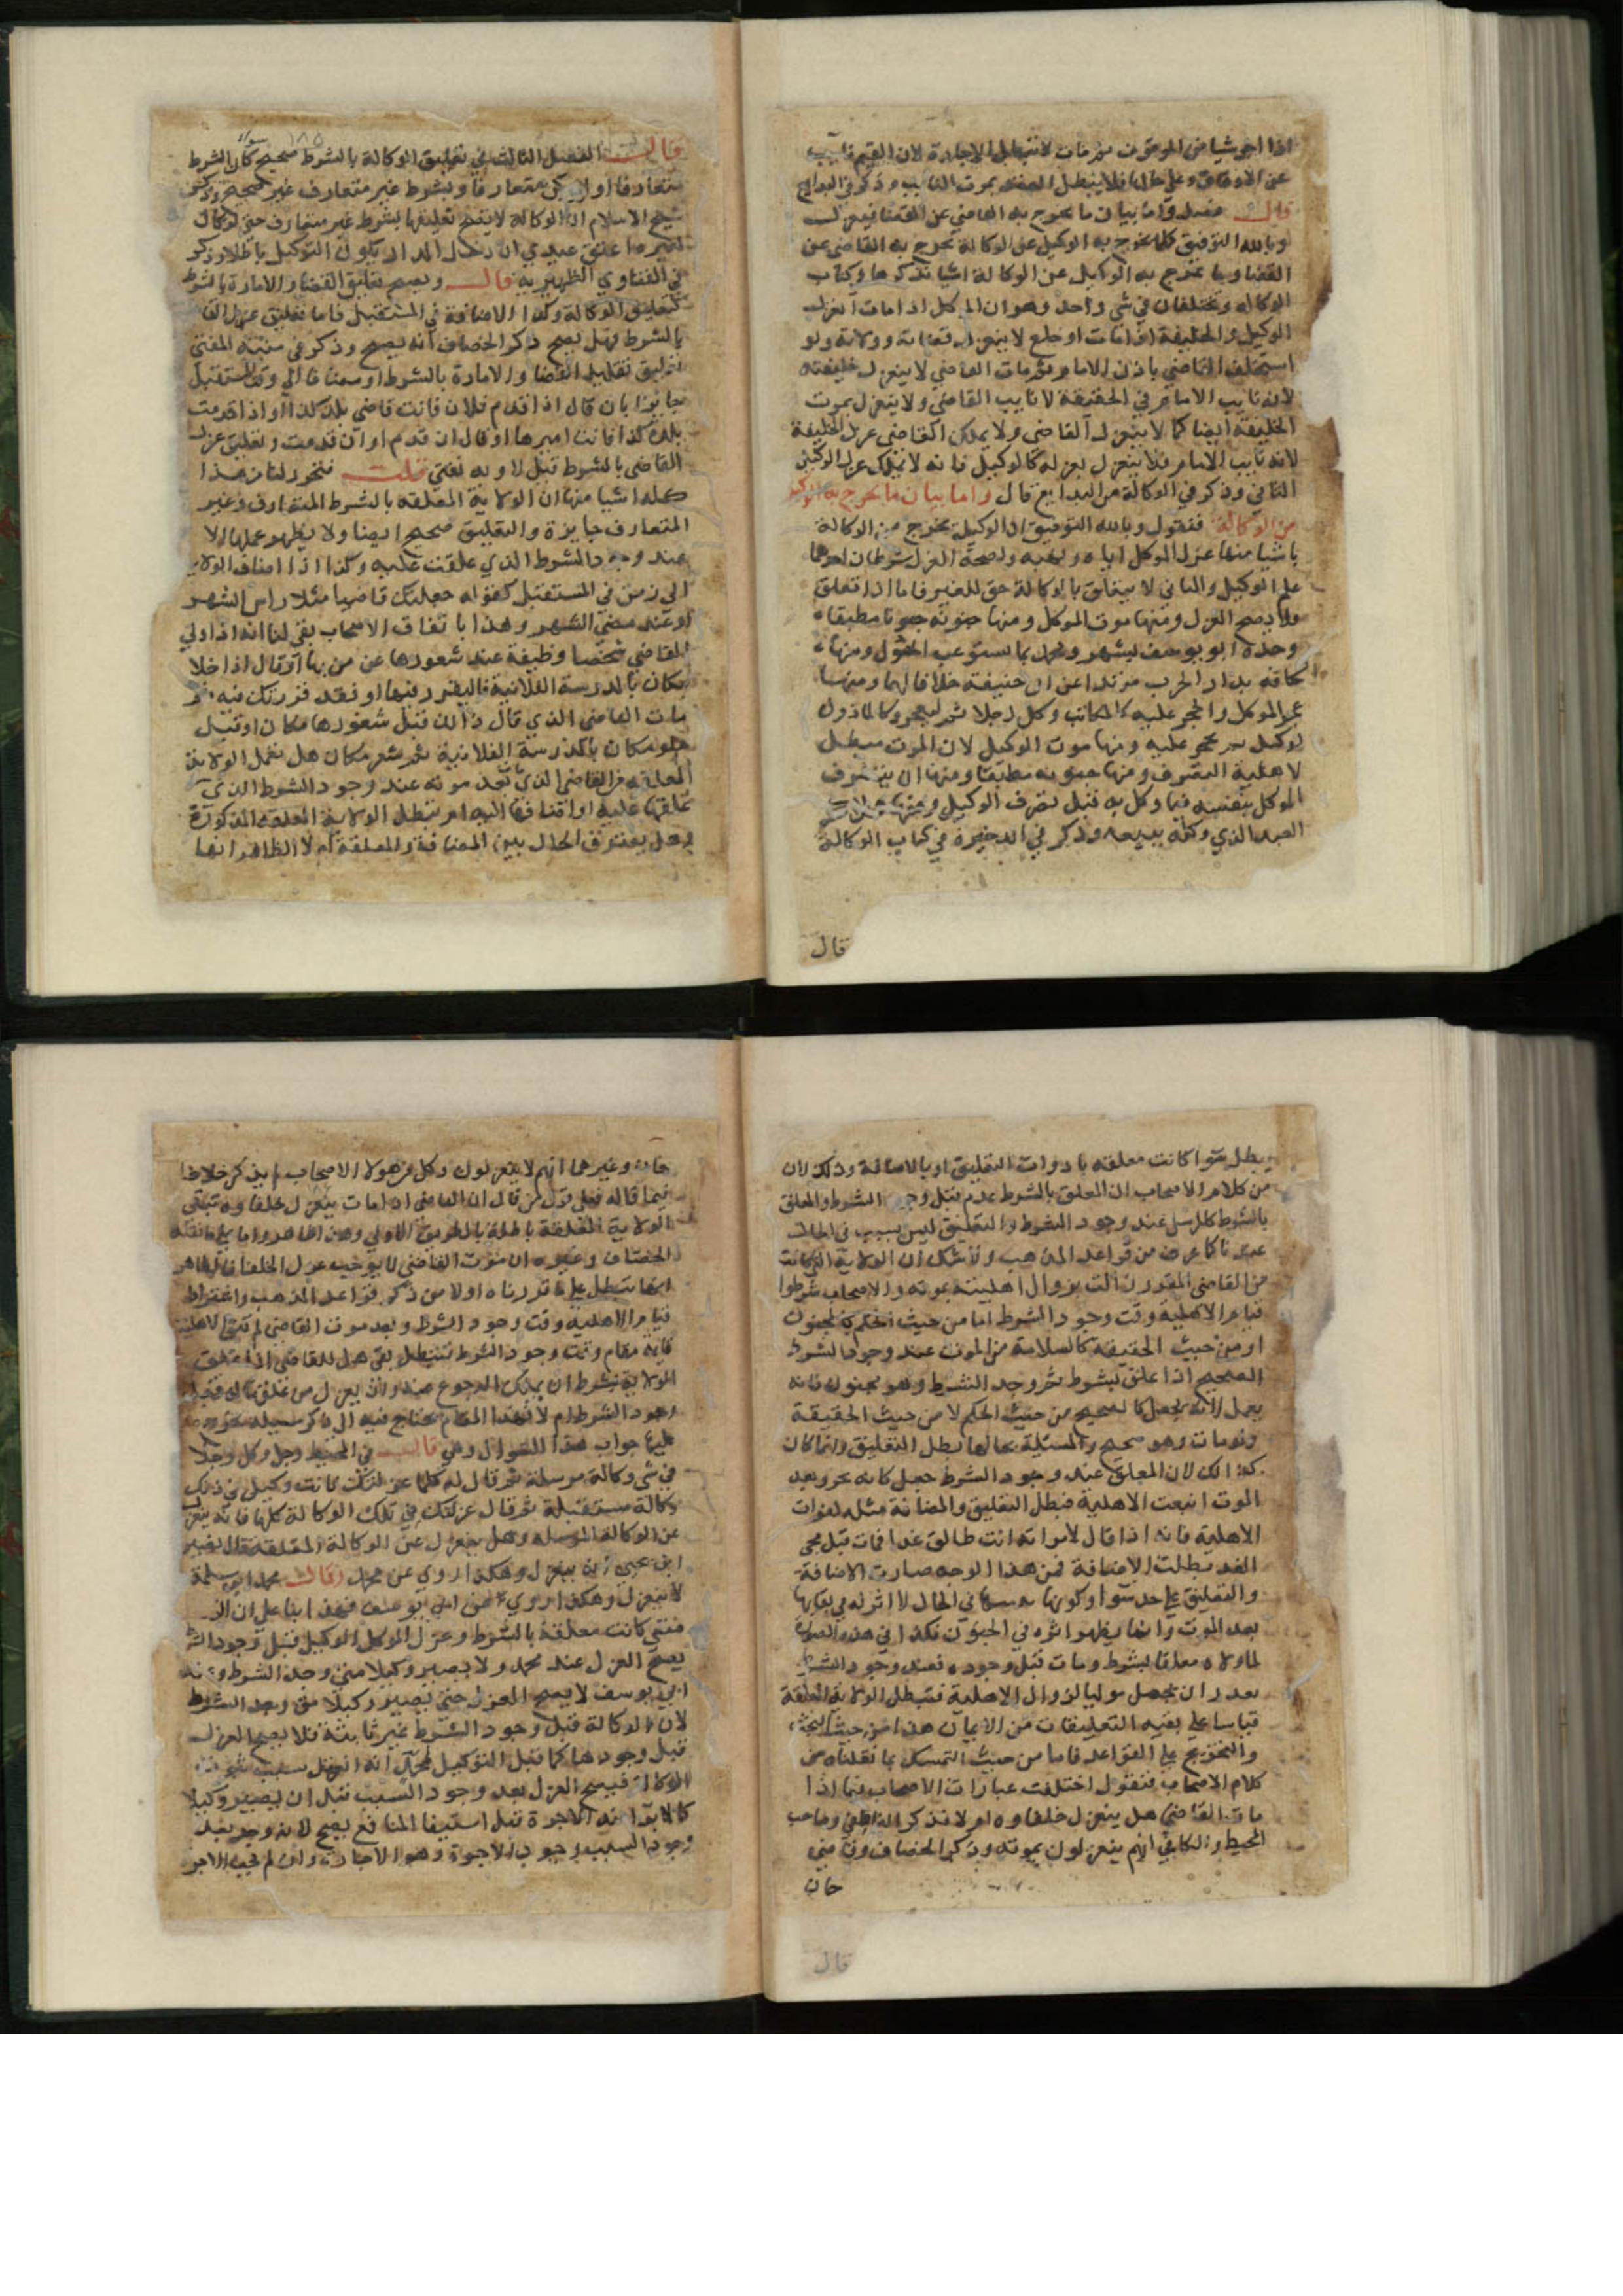 اذا اجر شيا من الموقوف ثم مات لا تبطل الاجارة لان القيم نايب
عن الاوقاف وعلى حالها فلا يبطل العقد بموت النايب وذكر في البدايع
قال فصل واما بيان ما يخرج به القاضي عن القضا فيقول
وبالله التوفيق كلما يخرج به الوكيل عن الوكالة يخرج به القاضي عن
القضا وما يخرج به الوكيل عن الوكالة اشيا نذكرها في كتاب
الوكالة ويختلفان في شي واحد وهو ان الموكل اذا مات انعزل
الوكيل والخليفة اذا مات او خلع لا ينعزل قضاته وولاته ولو
استخلف القاضي باذن الامام ثم مات القاضي لا ينعزل خليفته
لانه نايب الامام في الحقيقة لا نايب القاضي ولا ينعزل بموت
الخليفة ايضا كما لا ينعزل القاضي ولا يملك القاضي عزل الخليفة
لانه نايب الامام فلا ينعزل بعزله كالوكيل فانه لا يملك عزل الوكيل
الثاني وذكر في الوكالة من البدايع قال واما بيان ما يخرج به الوكيل
من الوكالة فنقول وبالله التوفيق ان الوكيل يخرج من الوكالة
باشيا منها عزل الموكل اياه ونهيه ولصحة العزل شرطان احدهما
علم الوكيل والثاني لا يتعلق بالوكالة حق للغير فاما اذا تعلق
ولا يصح العزل ومنها موت الموكل ومنها جنونه جنونا مطبقا
وحده ابو يوسف بشهر ومحمد بما يستوعب الحول ومنها
لحاقه بدار الحرب مرتدا عن ابي حنيفة خلافا لهما ومنها
عجز الموكل والحجر عليه كالمكاتب وكل رجلا ثم يعجز وكالماذون
يوكل ثم يحجر عليه ومنها موت الوكيل لان الموت مبطل
لاهلية التصرف ومنها جنونه مطبقا ومنها ان يتصرف
الموكل بنفسه فيما وكل به قبل تصرف الوكيل ومنها هلاك
العبد الذي وكله ببيعه وذكر في الذخيرة في كتاب الوكالة
قال
١٨٥
سواء
قال الفصل الثالث في تعليق الوكالة بالشرط صحيح كان الشرط
متعارفا او لا يكن متعارفا وبشرط غير متعارف غير صحيح وذكر
شيخ الاسلام ان الوكالة لا يصح تعليقها بشرط غير متعارف حتى لو كان
عبدي ان دخل الدار يكون التوكيل باطلا وذكر
في الفتاوي الظهيرية قال ويصح تعليق القضا والامارة بالشرط
كتعليق الوكالة وكذا الاضافة في المستقبل فاما تعليق عزل القا
بالشرط فهل يصح ذكر الخصاف انه يصح وذكر في منية المفتي
تعليق تقليد القضا والامارة بالشرط او مضافا الى وقت المستقبل
جايز بان قال اذا قدم فلان فانت قاضي بلد كذا او اذا قدمت
بلدة كذا فانت اميرها او قال ان قدم او ان قدمت وتعليق عزل
القاضي بالشرط قبل لا وبه نفتي قلت فتحرر لنا من هذا
كله اشيا منها ان الولاية المعلقة بالشرط المتعارف وغير
المتعارف جايزة والتعليق صحيح ايضا ولا يظهر عملها الا
عند وجود الشرط الذي علقت عليه وكذا اذا اضاف الولاية
الى زمن في المستقبل كقوله جعلتك قاضيا مثلا راس الشهر
او عند مضي الشهر وهذا باتفاق الاصحاب بقي لنا انه اذا ولي
القاضي شخصا وظيفة عند شعورها عن من بها او قال اذا خلا
مكان بالمدرسة الفلانية فاليقرر فيها او فقد قررتك فيه ثم
مات القاضي الذي قال ذلك قبل شغورها مكان او قبل
خلو مكان بالمدرسة الفلانية ثم شغر مكان هل تعمل الولاية
المعلقة من القاضي الذي بعد موته عند وجود الشرط الذي
علقها عليه او اضافها اليه ام تبطل الولاية المعلقة المذكورة
وهل يفترق الحال بين المضافة والمعلقة ام لا الظاهر انها
يبطل سوا كانت معلقة بادوات التعليق او بالاضافة وذلك لان
من كلام الاصحاب ان المعلق بالشرط عدم قبل وجود الشرط والمعلق
بالشرط كالمرسل عند وجود الشرط والتعليق ليس بسبب في الحال
عندنا كما عرف من قواعد المذهب ولا شك ان الولاية التي كانت
من القاضي المقدر زالت بزوال اهليته بموته والاصحاب شرطوا
قيام الاهلية وقت وجود الشرط اما من حيث الحكم كالمجنون
او من حيث الحقيقة كالسلامة من الموت عند وجود الشرط
الصحيح اذا علق بشرط ثم وجد الشرط وهو مجنون فانه
يعمل لانه يجعل كالصحيح من حيث الحكم لا من حيث الحقيقة
ولو مات وهو صحيح والمسئلة بحالها بطل التعليق وانما كان
كذلك لان المعلق عند وجود الشرط جعل كانه نجز وبعد
الموت انتفت الاهلية فبطل التعليق والمضافة مثله لفوات
الاهلية فانه اذا قال لامراته انت طالق غدا فمات قبل مجي
الغد بطلت الاضافة فمن هذا الوجه صارت الاضافة
والتعليق على حد سوا وكونها سببا في الحال لا اثر له في بقايها
بعد الموت وانما يظهر اثره في الجنون فكذا في هذه الصورة
لما ولاه معلقا بشرط ومات قبل وجوده فعند وجود الشرط
تعذر ان يجعل موليا لزوال الاهلية فتبطل الولاية المعلقة
قياسا على بقية التعليقات من الايمان هذا من حيث البحث
والتخريج على القواعد فاما من حيث التمسك بما نقلناه من
كلام الاصحاب فنقول اختلفت عبارات الاصحاب فيما اذا
مات القاضي هل ينعزل خلفاوه ام لا فذكر وصاحب
المحيط والكافي انهم ينعزلون بموته وذكر الخصاف وقاضي
خان
قال
خان وغيرهما انهم لا ينعزلون وكل من هولا الاصحاب لم يذكر خلافا
فيما قاله فعلى قول من قال ان القاضي اذا مات ينعزل خلفاوه تبقى
الولاية المعلقة باطلة بالطريق الاولي وهذا الظاهر واما على ما نقله
الخصاف وغيره ان موت القاضي لا يوجب عزل الخلفا فالظاهر
انها تبطل على ما قررناه اولا من ذكر قواعد المذهب واشتراط
قيام الاهلية وقت وجود الشرط وبعد موت القاضي لم تبق الاهلية
قايمة مقام وقت وجود الشرط فتبطل بقي هل للقاضي اذا علق
الولاية بشرط ان يملك الرجوع عنه وان يعزل من علق له قبل
وجود الشرط ام لا فهذا المقام يحتاج فيه الى ذكر مسئلة
عليها جواب هذا السؤال وهي قال في المحيط رجل وكل رجلا
في شي وكالة مرسلة ثم قال له كلما عزلتك فانت وكيلي في ذلك
وكالة مستقبلة ثم قال عزلتك في تلك الوكالة كلها فانه ينعزل
عن الوكالة المرسلة وهل ينعزل عن الوكالة المعلقة قال نصير
ابن يحيى انه ينعزل وهكذا روي عن محمد وقال محمد بن سلمة
لا ينعزل وهكذا روي عن ابي يوسف فهذا بنا على ان
متى كانت معلقة بالشرط وعزل الموكل الوكيل قبل وجود الشر
يصح العزل عند محمد ولا يصير وكيلا متى وجد الشرط وعند
ابي يوسف لا يصح العزل حتى يصير وكيلا متى وجد الشرط
لان الوكالة قبل وجود الشرط غير ثابتة فلا يصح العزل
قبل وجودها كما قبل التوكيل لمحمد انه
الوكالة فيصح العزل بعد وجود السبب قبل ان يصير وكيلا
كالابرا عن الاجرة قبل استيفا المنافع يصح لانه وجد بعد
وجود السبب وجوب الاجرة وهو الاجارة وان لم تجب الاجر